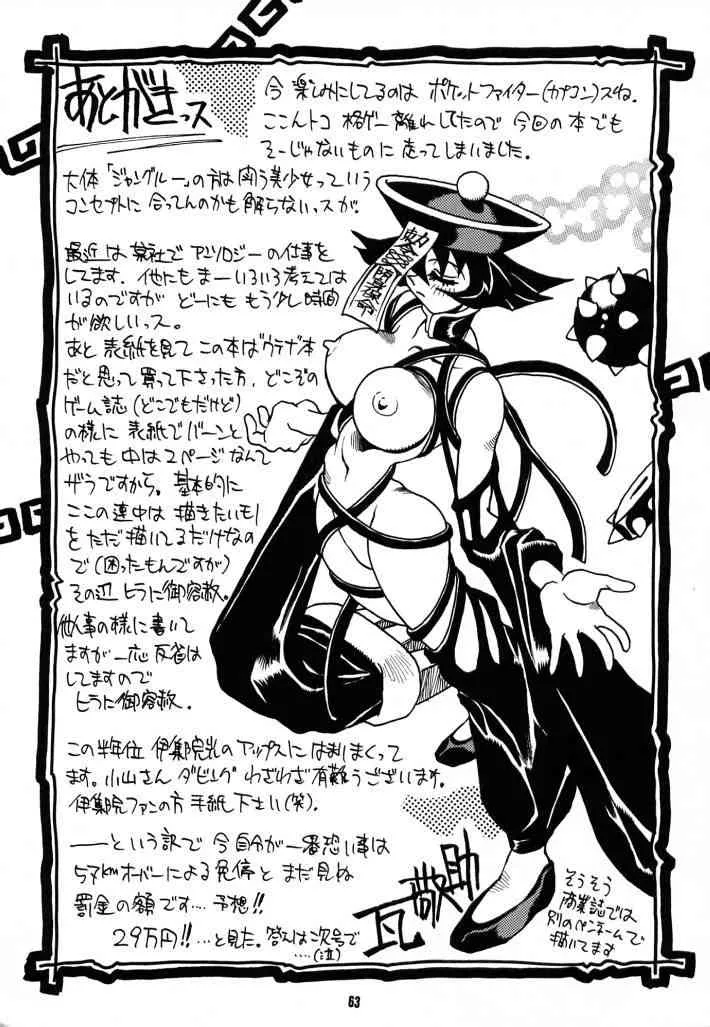 あとがきっス
今 楽しみにしてるのは ポケットファイター(カプコン)スね。
ここんトコ 格ゲー離れしてたので 今回の本でも
そーじゃないものに 走ってしまいました。
大体「ジャングルー」の方は 闘う美少女っていう
コンセプトに 合ってんのかも解らないっスが。
最近は某社で アンソロジーの仕事を
してます。他にもまーいろいろ考えては
いるのですが どーにも もう少し時間
が欲しいっス。
あと 表紙を見て この本は「ウテナ」本
だと思って買って下さった方、どこぞの
ゲーム誌(どこでもだけど)
の様に 表紙でバーンと
やっても中は2ページなんて
ザラですから。基本的に
ここの連中は 描きたいモノ
をただ描いてるだけなの
で(困ったもんですが)
その辺 ヒラに御容赦。
他人事の様に書いて
ますが一応反省は
してますので
ヒラに御容赦.
この半年位 伊集院光のアップスに はまりまくって
ます。小山さん ダビング わざわざ有難うございます。
伊集院ファンの方 手紙下さい(笑).
――という訳で 今自分が一番恐い事は
57kmオーバーによる免停と まだ見ぬ
罰金の額です‥‥予想!!
29万円!!‥‥と見た。答えは次号で
‥‥(泣)
瓦敬助
そうそう
商業誌では
別のペンネームで
描いてます
63